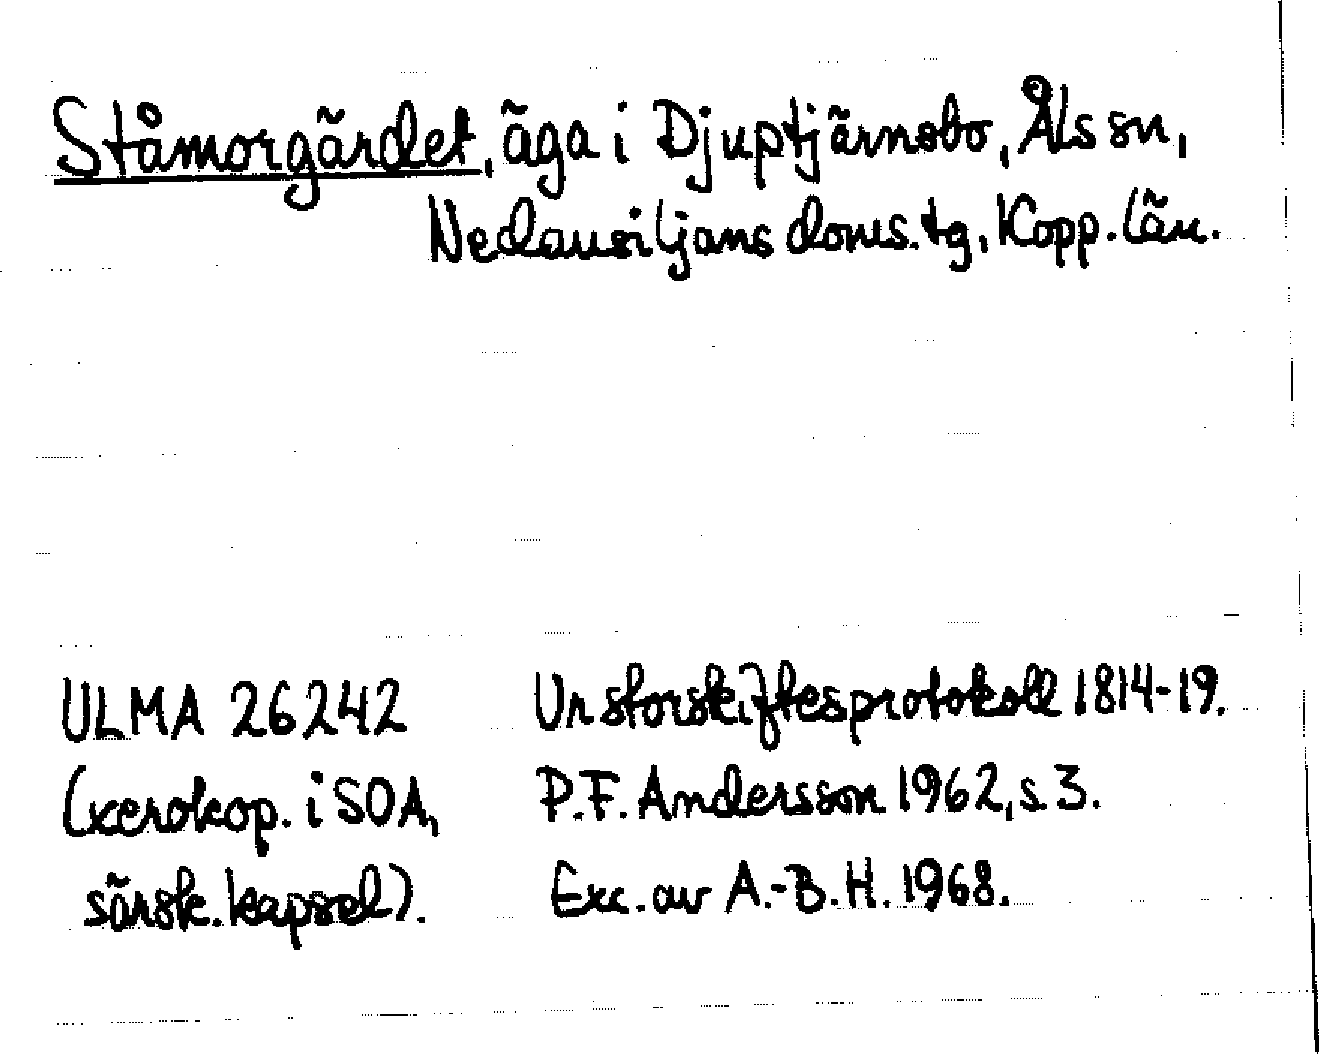 Ståmorgärdet, äga i Djuptjärnsbo, Åls sn,
Nedansiljans doms. tg, Kopp. län.
ULMA 26242
(xerokop. i SOA,
särsk. kapsel).
Ur storskiftesprotokoll 1814-19.
P.F. Andersson 1962, s. 3.
Exc. av A.-B. H. 1968.